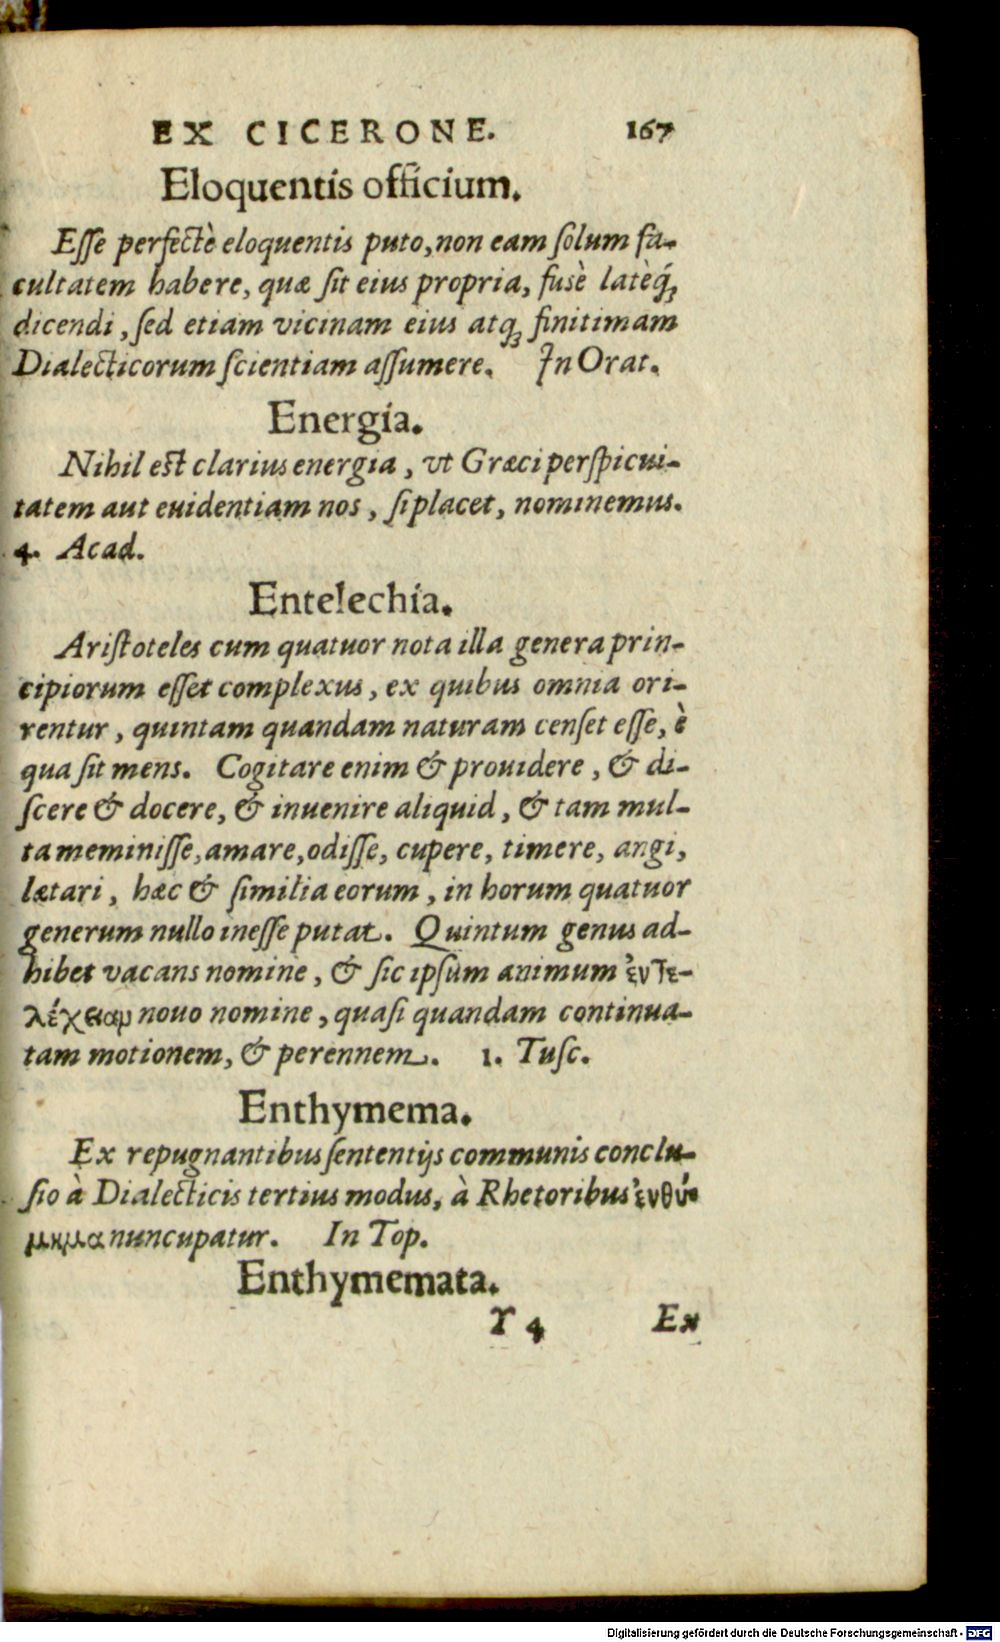 EX CICERONE. 167
Eloquentis officium.
Eſſe perfectè eloquentis puto, non eam ſolum fa-
cultatem habere, quæ ſit eius propria, fusè latèq́;
dicendi, ſed etiam vicinam eius atq; finitimam
Dialecticorum ſcientiam aſſumere. In Orat.
Energia.
Nihil est clarius energia, vt Græci perſpicui-
tatem aut euidentiam nos, ſi placet, nominemus.
4. Acad.
Entelechia.
Ariſtoteles cum quatuor nota illa genera prin-
cipiorum eſſet complexus, ex quibus omnia ori-
rentur, quintam quandam naturam cenſet eſſe, è
qua ſit mens. Cogitare enim & prouidere, & di-
ſcere & docere, & inuenire aliquid, & tam mul-
ta meminiſſe, amare, odiſſe, cupere, timere, angi,
lætari, hæc & ſimilia eorum, in horum quatuor
generum nullo ineſſe putat. Quintum genus ad-
hibet vacans nomine, & ſic ipſum animum ἐντε-
λέχειαν nouo nomine, quaſi quandam continua-
tam motionem, & perennem. 1. Tuſc.
Enthymema.
Ex repugnantibus ſententijs communis conclu-
ſio à Dialecticis tertius modus, à Rhetoribus ἐνθύ-
μημα nuncupatur. In Top.
Enthymemata.
Y 4 Ex
Digitalisierung gefördert durch die Deutsche Forschungsgemeinschaft - DFG